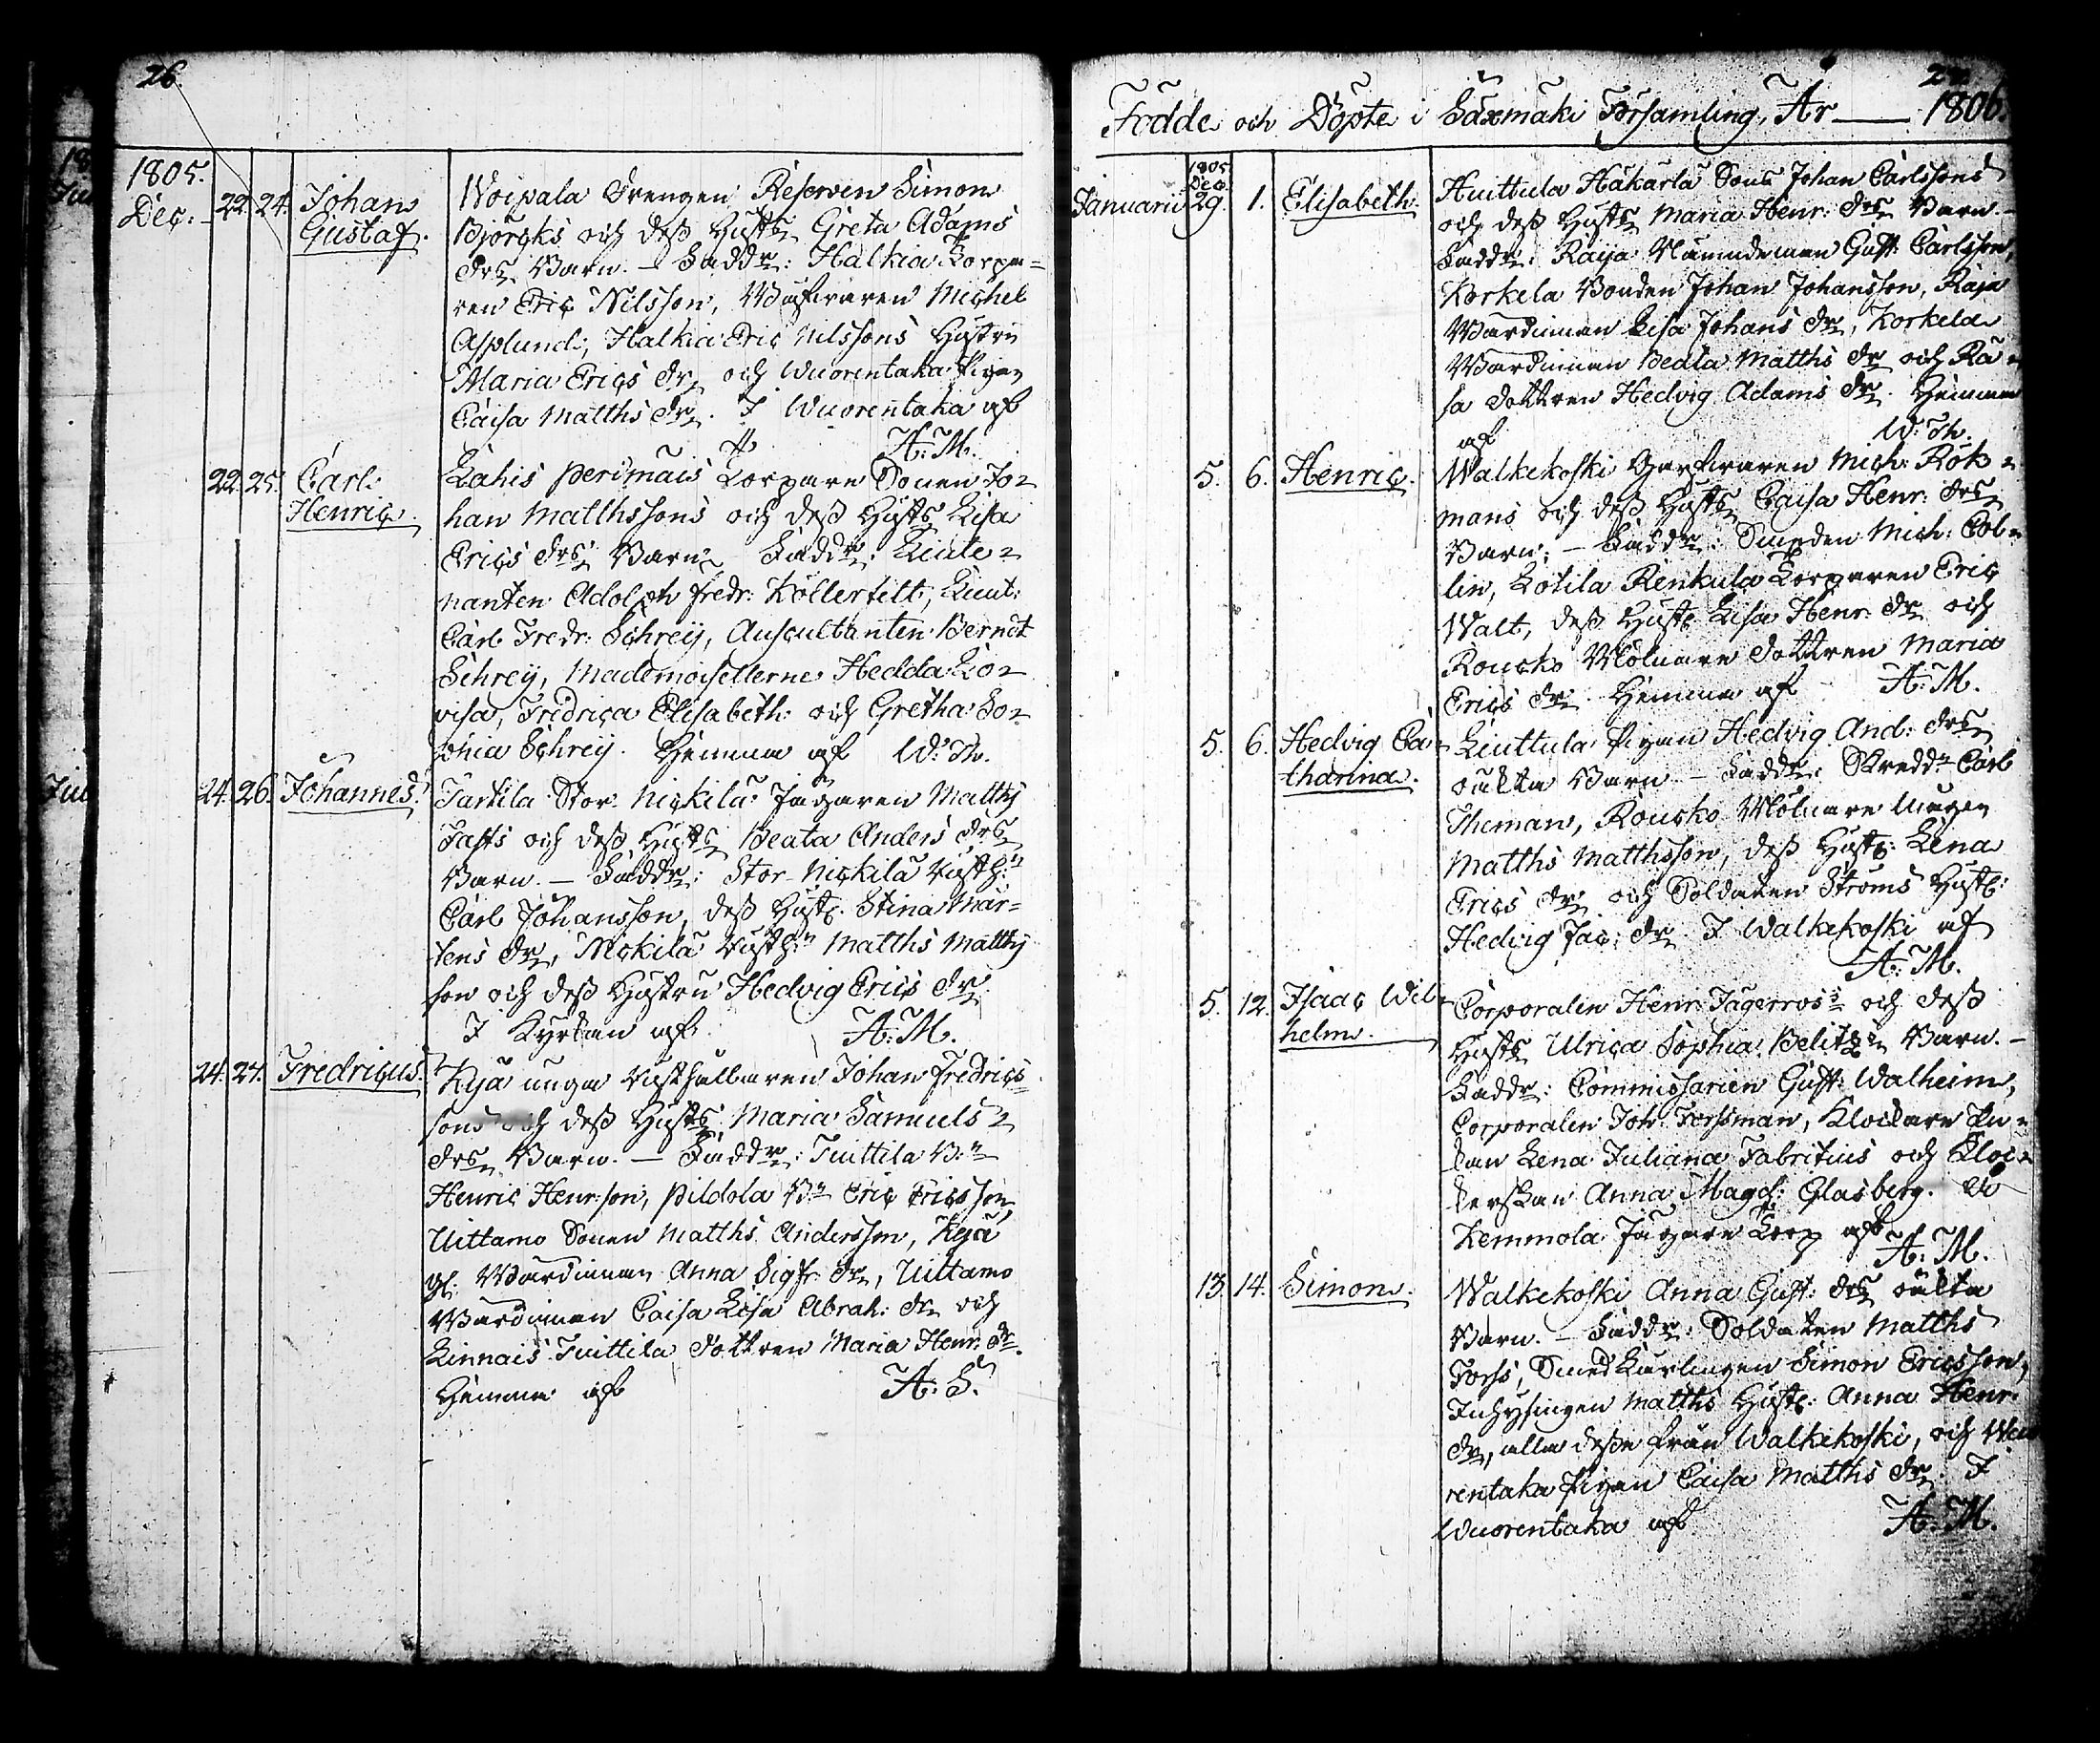 26.
1805.
Dec: 22. 24. Johan Gustaf.
Woipala Drengen Reserven Simon
Björcks och deß Hust: Greta Adams
drs Barn. — Faddr: Halkia Torpa=
ren Eric Nilsson, Michel
Asplund, Halkia Eric Nilssons Hustru
Maria Erics dr och Wuorentaka Pigan
Caisa Matths dr. I Wuorentaka af
A: M.
22. 25. Carl Henric.
Lahis Perimäis Torpare Sonen Jo=
han Matthssons och deß Hust: Lisa
Erics drs Barn. Faddr: Lieute=
nanten Adolph Fredr: Tollertelt, Lieut:
Carl Fredr: Schreij, Auscultanten Berndt
Schreij, Mademoisellerne Hedda Lo=
visa, Fredrica Elisabeth och Gretha So=
phia Schreij. Hemma af W: Th.
24. 26. Johannes.
Tartila Stor Nickilä Jägaren Matths
Fasts och deß Hust: Beata Anders drs
Barn. — Faddr: Stor-Nickilä Rusth:n
Carl Johansson, deß Hust: Stina Mår=
tens dr, Nickilä Rusth:n Matths Matths
son och deß Hustru Hedvig Erics dr
I Kyrkan af A: M.
24. 27. Fredricus.
Kyjä unga Rusthållaren Johan Fredrics=
sons och deß Hust: Maria Samuels=
drs Barn. — Faddr: Tuittila B:n
Henric Henr:son, Pildola B:n Eric Ericsson,
Uittamo Sonen Matths Andersson, Kyjä
gl. Wärdinnan Anna Sigfr: dr, Uittamo
Wärdinnan Caisa Lisa Abrah: dr och
Linnais Tuittila dottren Maria Henr: dr.
Hemma af A: S.
27.
Födde och Döpte i Säxmäki Församling, År — 1806.
Januarii 1805 Dec. 29. 1. Elisabeth.
Huittula Häkärlä Sons Johan Carlssons
och deß Hust: Maria Henr: drs Barn. —
Faddr: Raija Nämndeman Gust: Carlsson,
Korkela Bonden Johan Johansson, Raja
Wärdinnan Lisa Johans dr, Korkela
Wärdinnan Beata Matths dr och Rä=
sa dottren Hedvig Adams dr. Hemma
af W: Th.
5. 6. Henric.
Walkekoski Mich: Rök=
mans och deß Hust: Caisa Henr: drs
Barn. — Faddr: Smeden Mich: Cob=
lin, Lotila Renkula Torparen Eric
Walt, deß Hust: Lisa Henr: dr och
Roucko Mölnare dottren Maria
Erics dr. Hemma af A: M.
5. 6. Hedvig Ca=tharina.
Liuttula Pigan Hedvig And: drs
oäkta Barn. — Faddr: Skredd:n Carl
Theman, Roucko Mölnare Mågen
Matths Matthsson, deß Hust: Lena
Erics dr och Soldaten Ströms Hust:
Hedvig Jac: dr. I Walkekoski af
A: M.
5. 12. Isaac Wil=helm.
Corporalen Henr: Jägerros:s och deß
Hust: Ulrica Sophia Belitz:s Barn. —
Faddr: Commissarien Gust: Walheim,
Corporalen Joh: Forssman, Klockare En=
kan Lena Juliana Fabritius och Kloc=
kerskan Anna Magd: Glasberg.
Kemmola Jägare Torp af
A: M.
13. 14. Simon.
Walkekoski Anna Gust: drs oäkta
Barn. — Faddr: Soldaten Matths
Forss, Smed Lärlingen Simon Ericsson,
Inhysingen Matths Hust: Anna Henr:
dr, alla deße från Walkekoski, och Wuo
rentaka Pigan Caisa Matths dr. I
Wuorentaka af A: M.